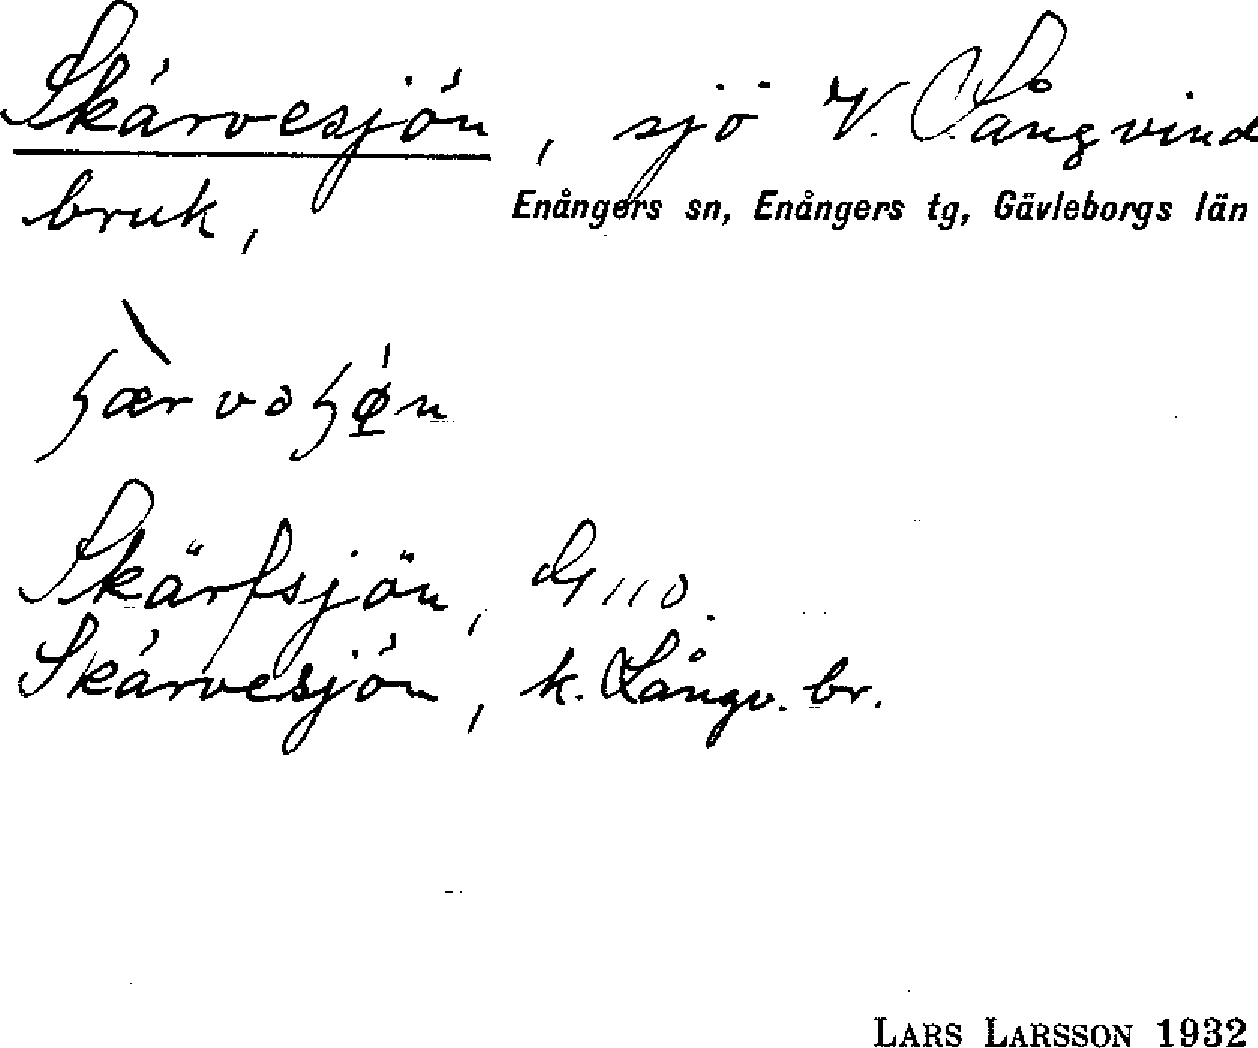 Skärvesjön, sjö V. Långvind
bruk, Enångers sn, Enångers tg, Gävleborgs län
Skärfsjön, G 110.
Skärvesjön, k. Långv. br.
LARS LARSSON 1932